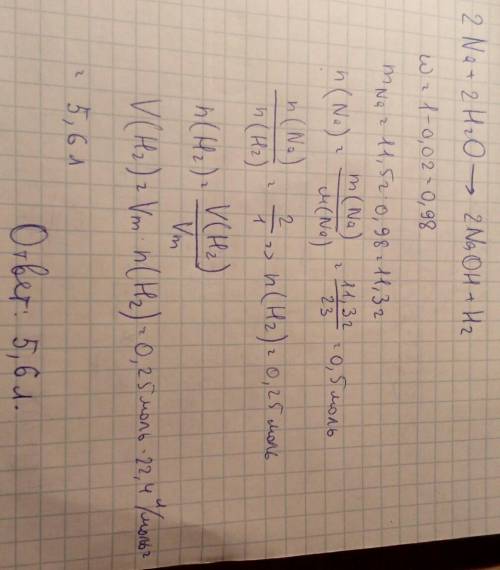 2Na + 2H₂O → 2NaOH + H₂
ω = 1 - 0,02 = 0,98
m Na = 11,5г · 0,98 = 11,3г
n(Na) = m(Na)/M(Na) = 11,3г/23 = 0,5 моль
n(Na)/n(H₂) = 2/1 => n(H₂) = 0,25 моль
n(H₂) = V(H₂)/Vm
V(H₂) = Vm · n(H₂) = 0,25 моль · 22,4 л/моль =
= 5,6 л
Ответ: 5,6 л.